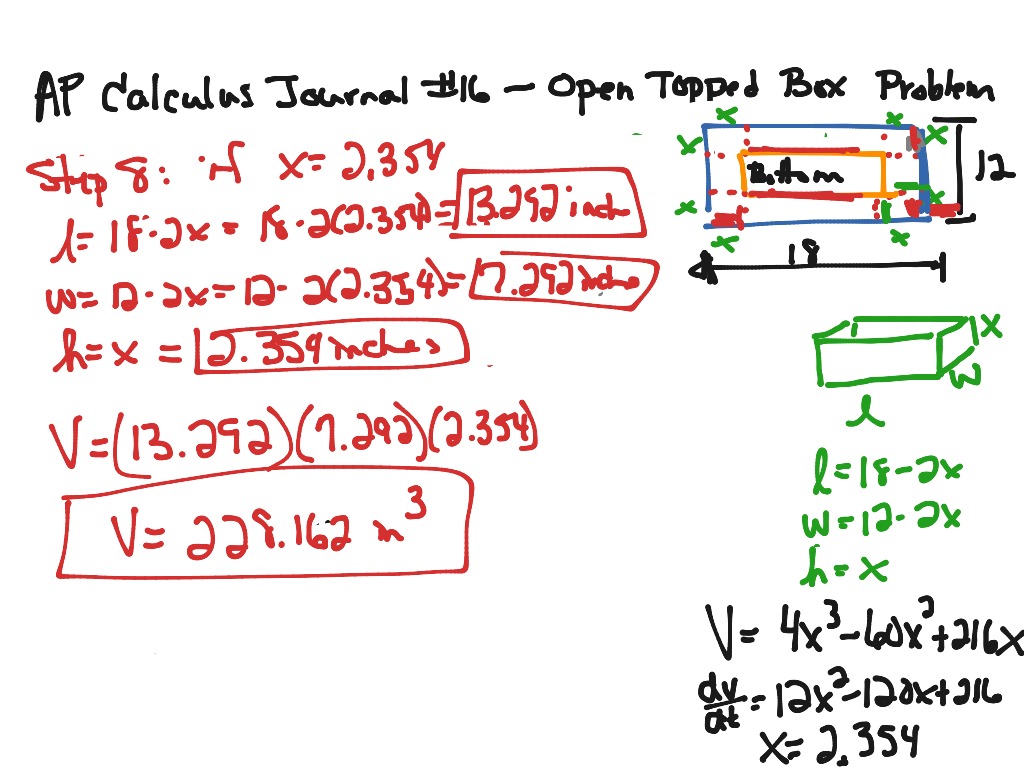 AP Calculus Journal #16 - Open Topped Box Problem
Step 8: if x = 2.354
l = 18 - 2x = 18 - 2(2.354) = 13.292 inches
w = 12 - 2x = 12 - 2(2.354) = 7.292 inches
h = x = 2.354 inches
V = (13.292)(7.292)(2.354)
V = 228.162 in³
x x
x x
Bottom
12
x x
x x
18
x
w
l
l = 18 - 2x
w = 12 - 2x
h = x
V = 4x³ - 60x² + 216x
dv/dt = 12x² - 120x + 216
x = 2.354